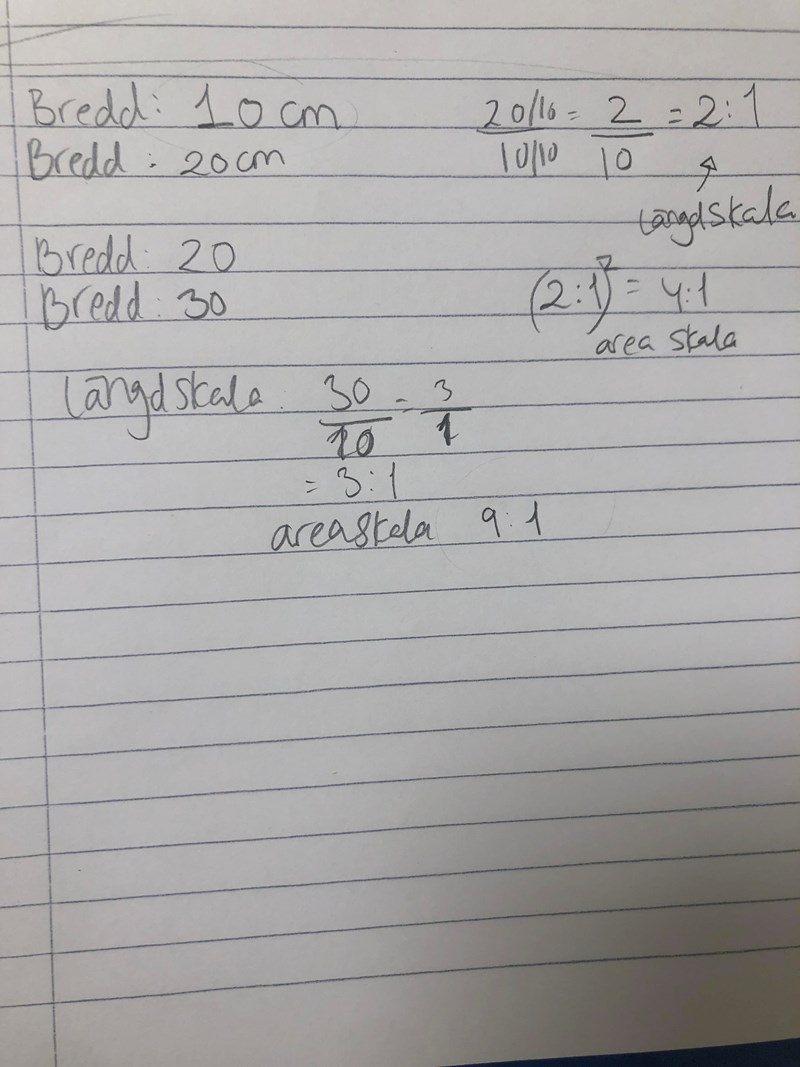 Bredd: 10 cm
Bredd: 20 cm
20/10 / 10/10 = 2/10 = 2:1
Längdskala
Bredd: 20
Bredd: 30
(2:1)² = 4:1
area skala
Längdskala: 30/10 = 3/1
= 3:1
areaskala 9:1